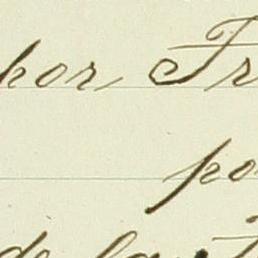 por Fr
po
de la